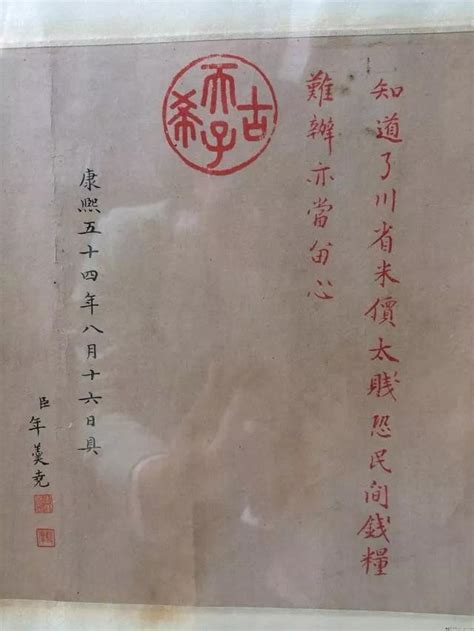 知道了川省米價太賤恐民间錢糧
難辦亦當留心
古希天子
康熙五十四年八月十六日具
臣年羹尧